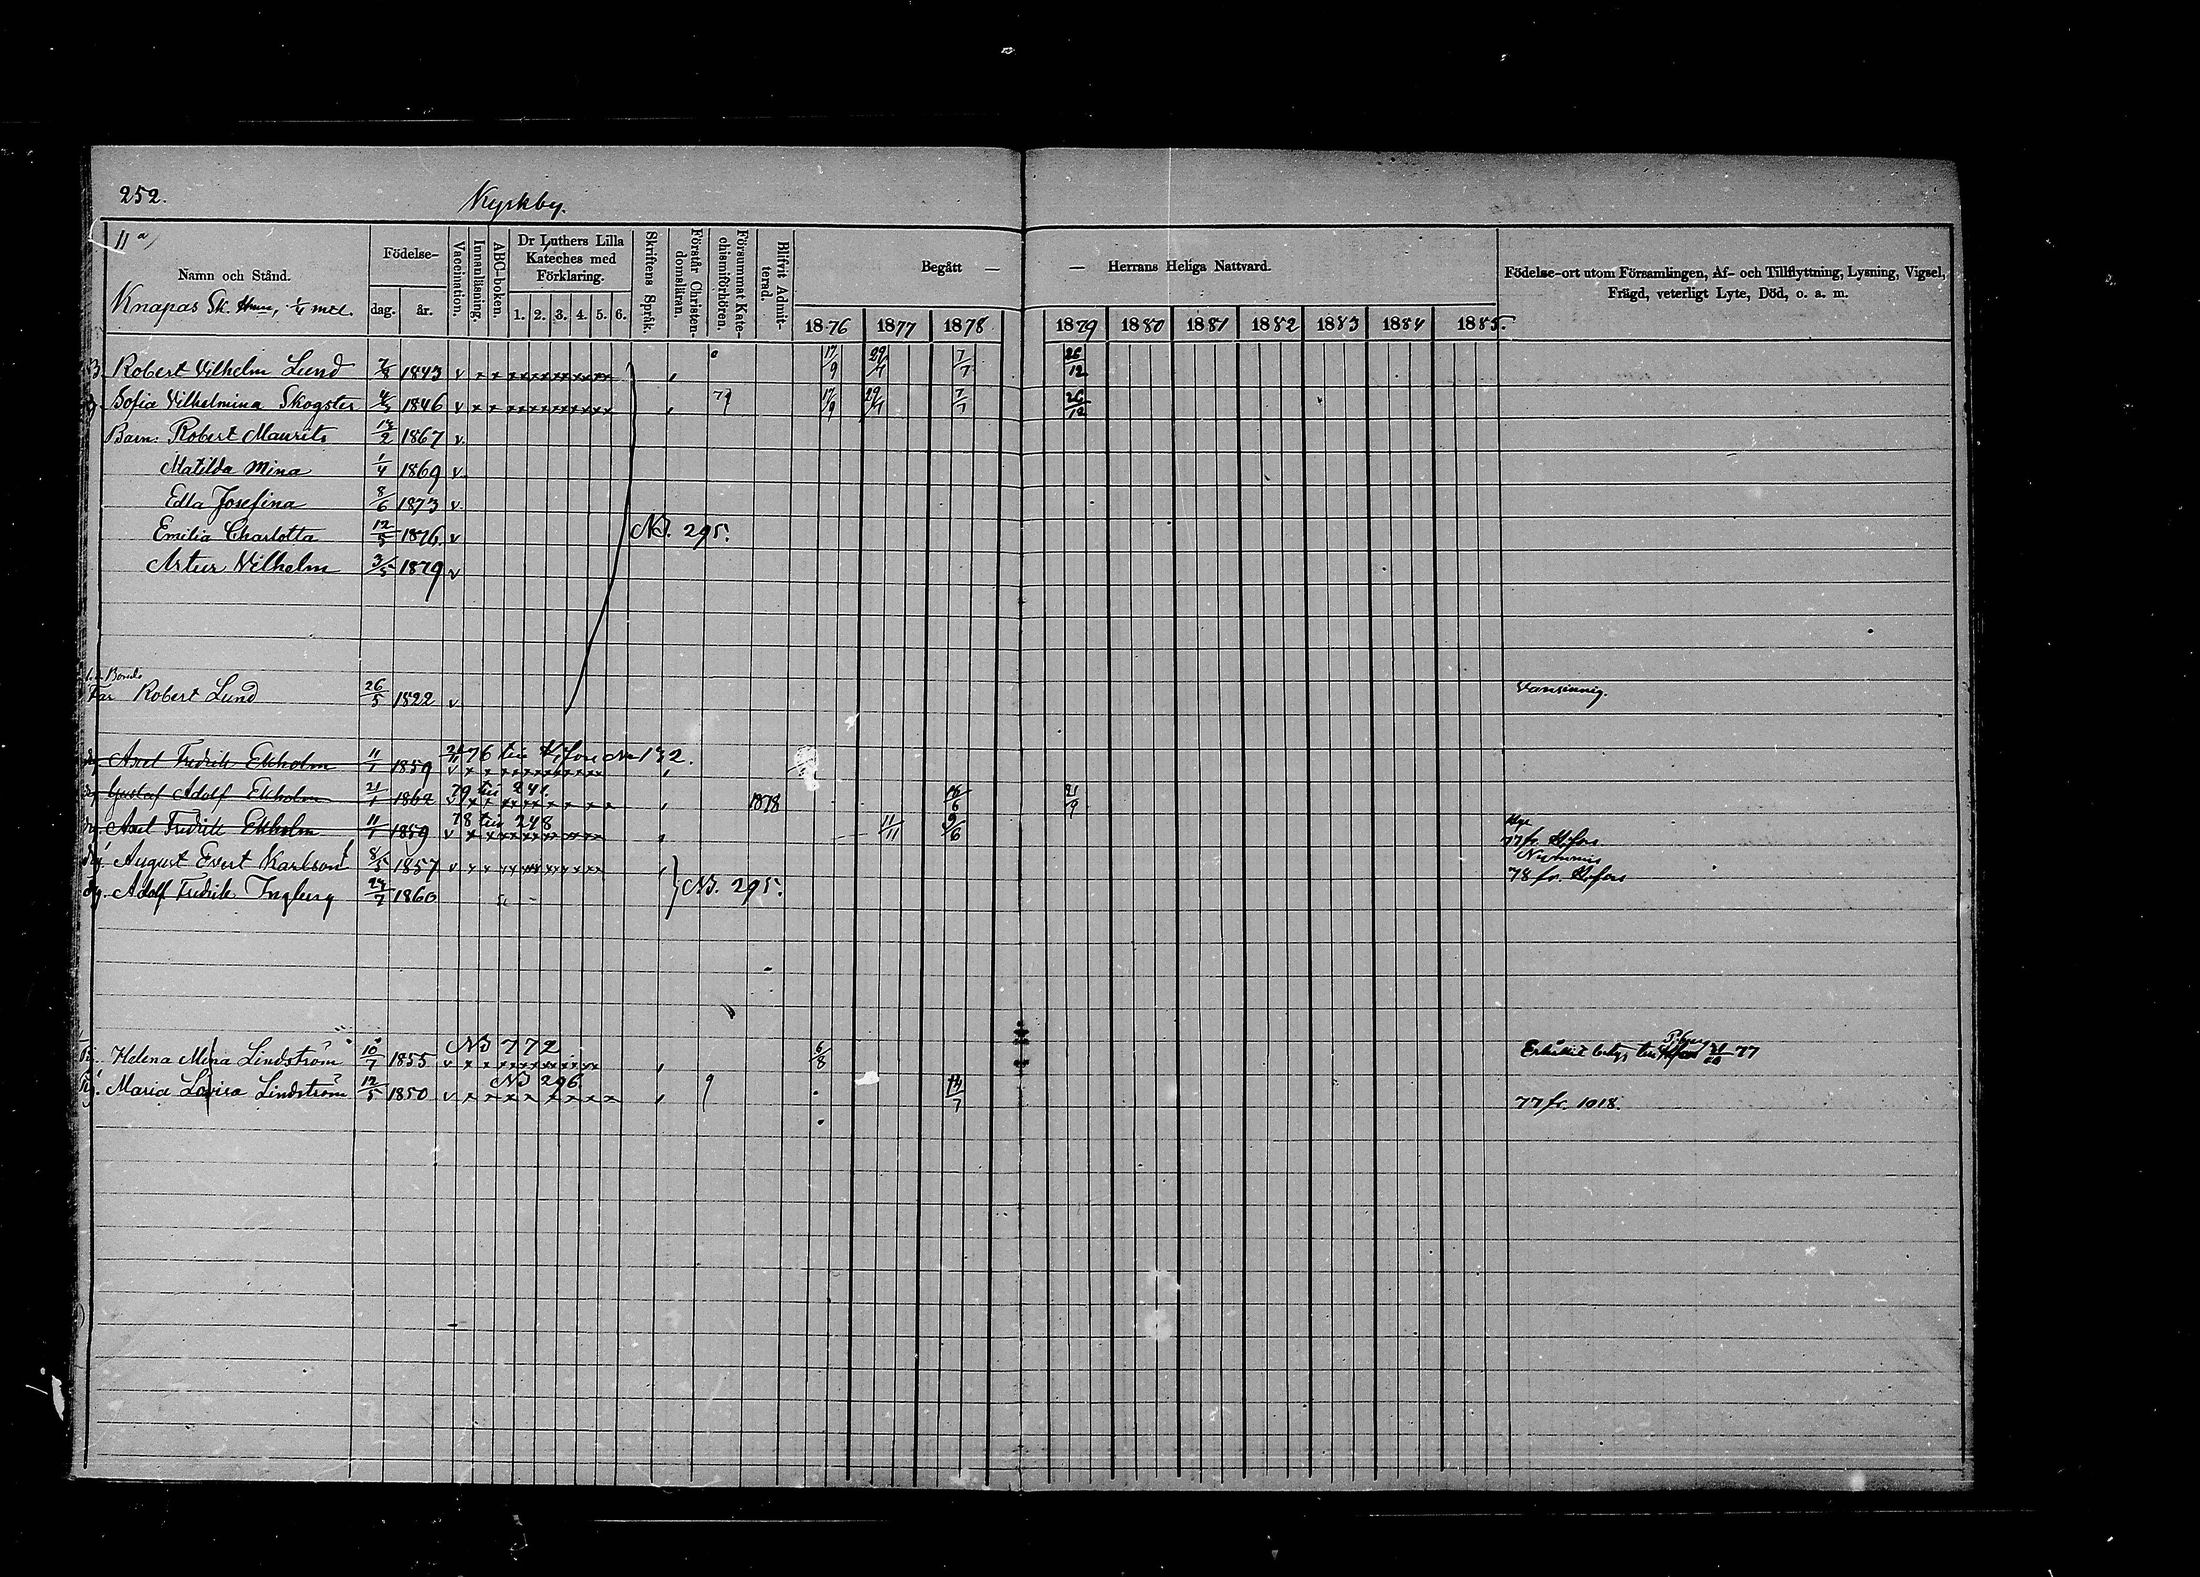 252.
Kyrkby.
11 a)
Namn och Stånd.
Knapas Sk. 1/4 mtl.
Födelse-
dag. år.
Vaccination.
Innanläsning.
ABC-boken.
Dr Luthers Lilla
Kateches med
Förklaring.
1. 2. 3. 4. 5. 6.
Skriftens Språk.
Förstår Christen-
domsläran.
Försummat Kate-
chismiförhören.
Blifvit Admit-
terad.
Begått — — Herrans Heliga Nattvard.
1876 1877 1878 1879 1880 1881 1882 1883 1884 1885.
Födelse-ort utom Församlingen, Af- och Tillflyttning, Lysning, Vigsel,
Frägd, veterligt Lyte, Död, o. a. m.
B. Robert Vilhelm Lund 1843 v 17/9 7/7 26/12
Sofia Vilhelmina Skogster 1846 v 79 17/9 7/7 26/12
Barn: Robert Maurits 1867 v.
Matilda Mina 1/4 1869 v.
Edla Josefina 8/6 1873 v.
Emilia Charlotta 12/5 1876 v NB. 295.
Artur Vilhelm 3/5 1879 v
Bonds
Far Robert Lund 26/5 1822 v Vansinnig.
76 till H:fors No 132.
Axel Fredrik Ekholm 11/1 1859 v
79 till 241
Gustaf Adolf Ekholm 21/1 1862 v 1878 21/9
78 till 248
Axel Fredrik Ekholm 11/1 1859 v 11/11 9/6 77 fr. H:fors
August Evert Karlson 8/5 1857 v Nummis
Adolf Fredrik Ingberg 1860 NB. 295. 78 fr. H:fors
NB 772
Helena Mina Lindström 10/7 1855 v 6/8 77
NB 296.
Maria Lovisa Lindström 12/5 1850 v 9 77 fr. 1018.